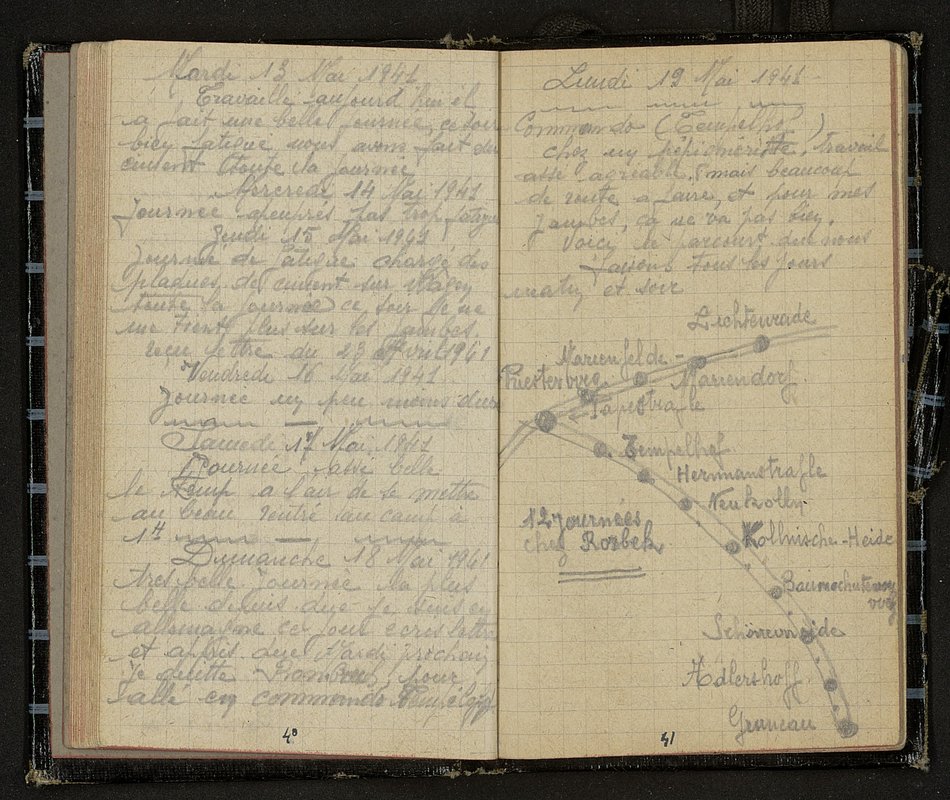 Mardi 13 Mai 1941
Travaillé aujourd'hui et
a fait une belle journée, ce soir
bien fatigué nous avons fait du
ciment toute la journée
Mercredi 14 Mai 1941
Journée apeuprés pas trop fatigue
Jeudi 15 Mai 1941
Journée de fatigue chargé des
plaques de ciment sur Wagon
toute la journée ce soir je ne
me tient plus sur les jambes.
reçu lettre du 23 Avril 1941
Vendredi 16 Mai 1941
Journée un peu moins dure
Samedi 17 Mai 1941
Journée asse belle
le temp a l'air de se mettre
au beau rentré au camp à
1H
Dimanche 18 Mai 1941
tres belle journée la plus
belle depuis que je suis en
allemagne ce jour ecris lettre
et appris que Mardi prochain
je quitte pour
allé en commando Tempelhof
40
Lundi 19 Mai 1941
Commando (Tempelhof)
chez un pepinieriste, travail
asse agreable, mais beaucoup
de route a faire, et pour mes
jambes, ça ne va pas bien.
Voici le parcourt que nous
faisons tous les jours
matin et soir
Lichtenrade
Marienfelde -
Mariendorf
Priesterweg
Papestraße
Tempelhof
Hermanstraße
Neukölln
12 journées
chez Rosbek
Kollnische-Heide
Baumschulenweg
weg
Schöneweide
Adlershoff
Gruneau
41